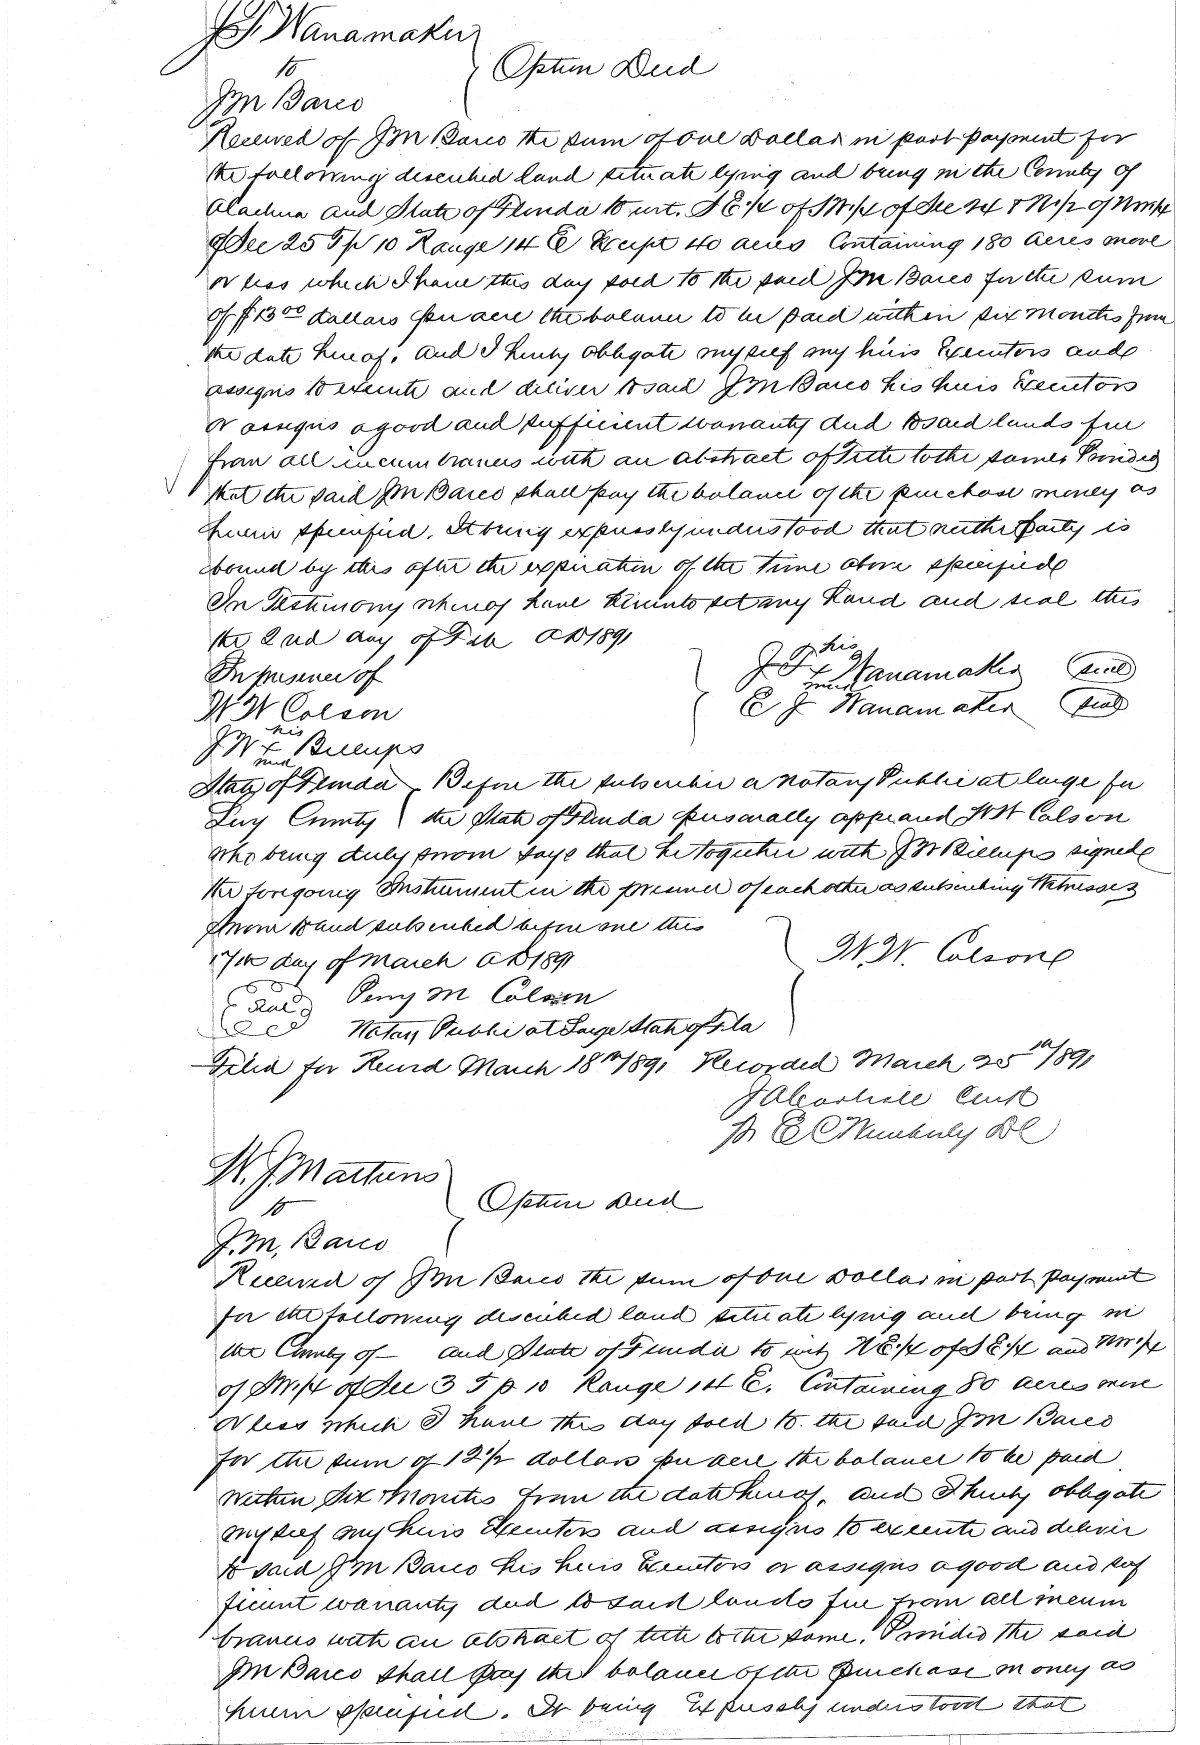 J.F. Wanamaker
to
Option Deed
J M Barco
Received of J M Barco the sum of One Dollar in part payment for
the following described land situate lying and being in the County of
Alachua and State of Florida to wit. S E 1/4 of S W 1/4 of Sec 24 & N 1/2 of N W 1/4
of Sec 25 T p 10 Range 14 E Except 40 acres Containing 180 acres more
or less which I have this day sold to the said J M Barco for the sum
of $13 00 dollars per acre the balance to be paid within six months from
the date hereof. and I hereby obligate myself my heirs Executors and
assigns to execute and deliver to said J M Barco his heirs Executors
or assigns a good and sufficient warranty deed to said lands free
from all incumbrances with an abstract of Title to the same. Provided
that the said J M Barco shall pay the balance of the purchase money as
herein specified. It being expressly understood that neither party is
bound by this after the expiration of the time above specified
In Testimony whereof have hereunto set my hand and seal this
the 2nd day of Feb A D 1891
In presence of
J F his x mark Wanamaker seal
W W Colson
E J Wanamaker seal
J W his x mark Billups
State of Florida Before the subscriber a Notary Public at large for
Levy County the State of Florida personally appeared W W Colson
who being duly sworn says that he together with J W Billups signed
the foregoing Instrument in the presence of each other as subscribing Witnesses
Sworn to and subscribed before me this
17th day of March A D 1891
W. W. Colson
Seal Perry M Colson
Notary Public at Large State of Fla
Filed for Record March 18th 1891 Recorded March 25th 1891
J A Carlisle Clerk
pr E C Wimberly D C
W. J. Matthews
to
Option Deed
J. M. Barco
Received of J M Barco the sum of One Dollar in part payment
for the following described land situate lying and being in
the County of and State of Florida to wit, N E 1/4 of S E 1/4 and N W 1/4
of S W 1/4 of Sec 3 T p 10 Range 14 E. Containing 80 acres more
or less which I have this day sold to the said J M Barco
for the sum of 12 1/2 dollars per acre the balance to be paid
within Six Months from the date hereof. and I hereby obligate
myself my heirs Executors and assigns to execute and deliver
to said J M Barco his heirs Executors or assigns a good and suf
ficient warranty deed to said lands free from all incum
brances with an abstract of title to the same. Provided the said
J M Barco shall pay the balance of the purchase money as
herein specified. It being Expressly understood that